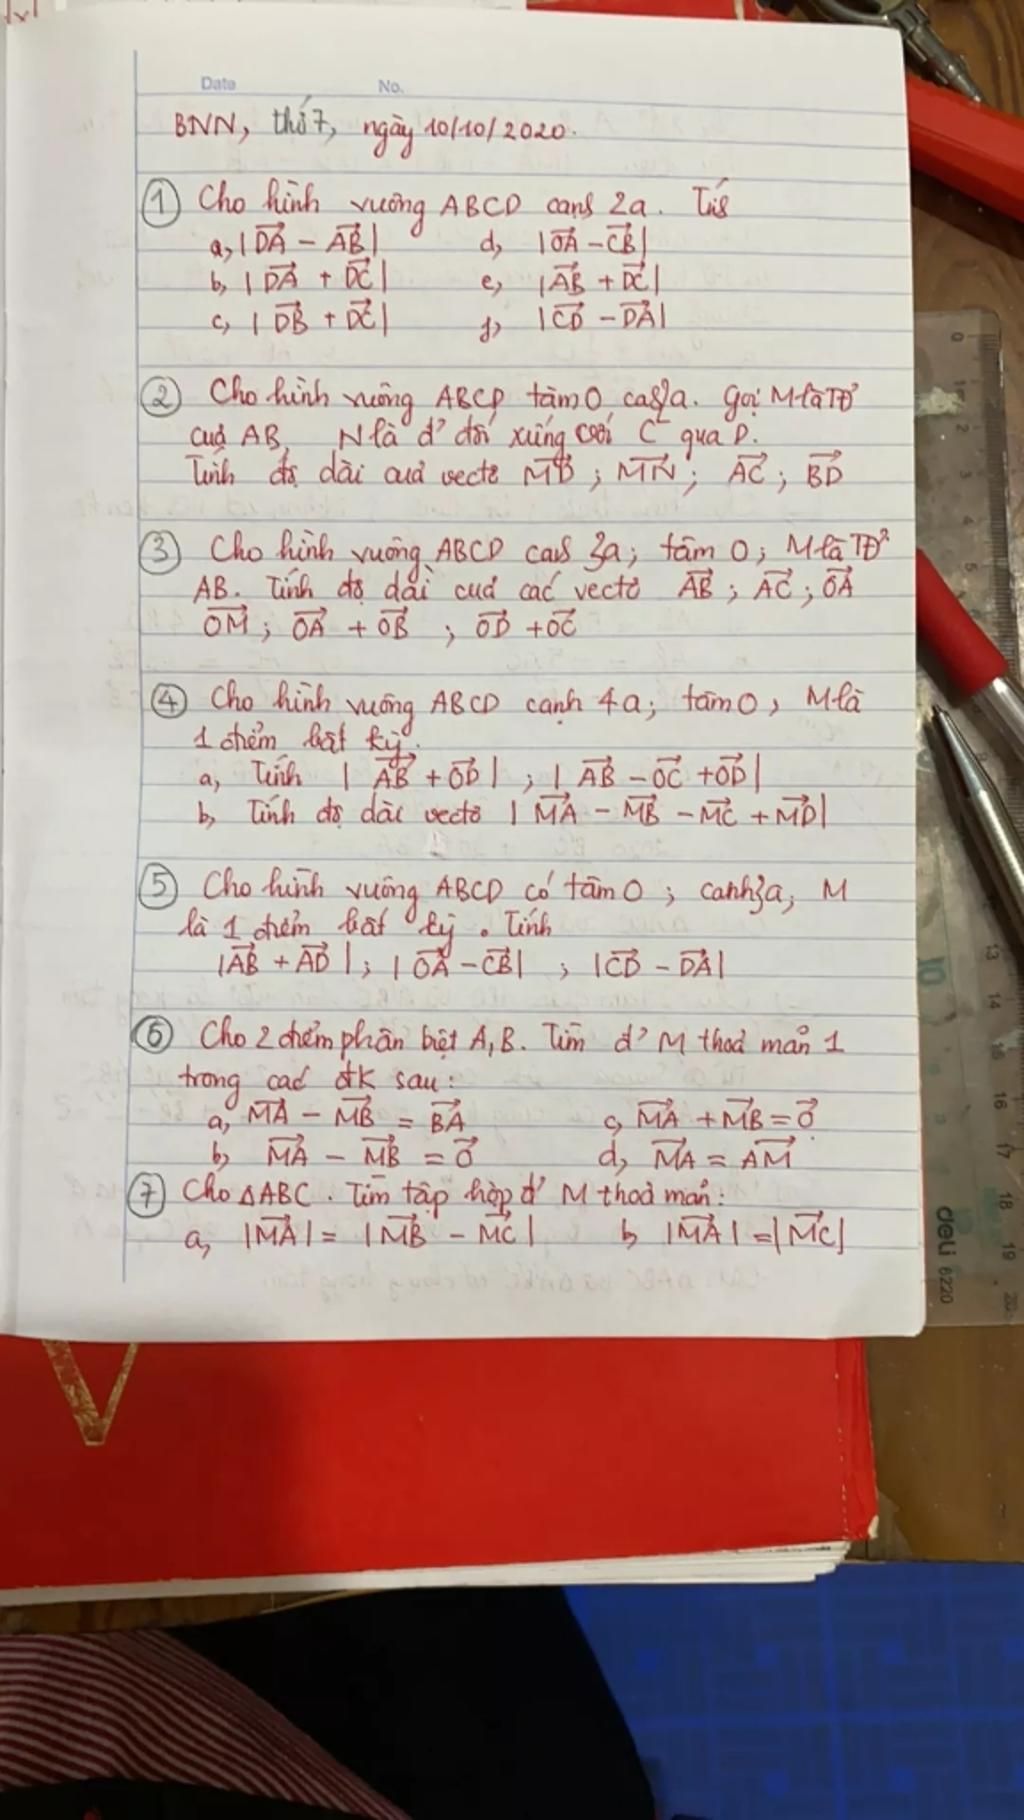 Date No.
BNN, thứ 7, ngày 10/10/2020.
① Cho hình vuông ABCD cạnh 2a. Tính
a, |DA⃗ - AB⃗| d, |OA⃗ - CB⃗|
b, |DA⃗ + DC⃗| e, |AB⃗ + DC⃗|
c, |DB⃗ + DC⃗| f, |CD⃗ - DA⃗|
② Cho hình vuông ABCD tâm O, cạnh 2a. Gọi M là TĐ
của AB, N là đ' đối xứng với C qua D.
Tính độ dài của vectơ MD⃗ ; MN⃗ ; AC⃗ ; BD⃗
③ Cho hình vuông ABCD cạnh 3a; tâm O; M là TĐ'
AB. Tính độ dài của các vectơ AB⃗ ; AC⃗ ; OA⃗
OM⃗ ; OA⃗ + OB⃗ ; OD⃗ + OC⃗
④ Cho hình vuông ABCD cạnh 4a; tâm O, M là
1 điểm bất kỳ.
a, Tính |AB⃗ + OD⃗| ; |AB⃗ - OC⃗ + OD⃗|
b, Tính độ dài vectơ |MA⃗ - MB⃗ - MC⃗ + MD⃗|
⑤ Cho hình vuông ABCD có tâm O ; cạnh 3a, M
là 1 điểm bất kỳ. Tính
|AB⃗ + AD⃗| ; |OA⃗ - CB⃗| ; |CD⃗ - DA⃗|
⑥ Cho 2 điểm phân biệt A, B. Tìm đ' M thoả mãn 1
trong các đk sau:
a, MA⃗ - MB⃗ = BA⃗ c, MA⃗ + MB⃗ = O⃗
b, MA⃗ - MB⃗ = O⃗ d, MA⃗ = AM⃗
⑦ Cho ΔABC. Tìm tập hợp đ' M thoả mãn:
a, |MA⃗| = |MB⃗ - MC⃗| b, |MA⃗| = |MC⃗|
deli 6220